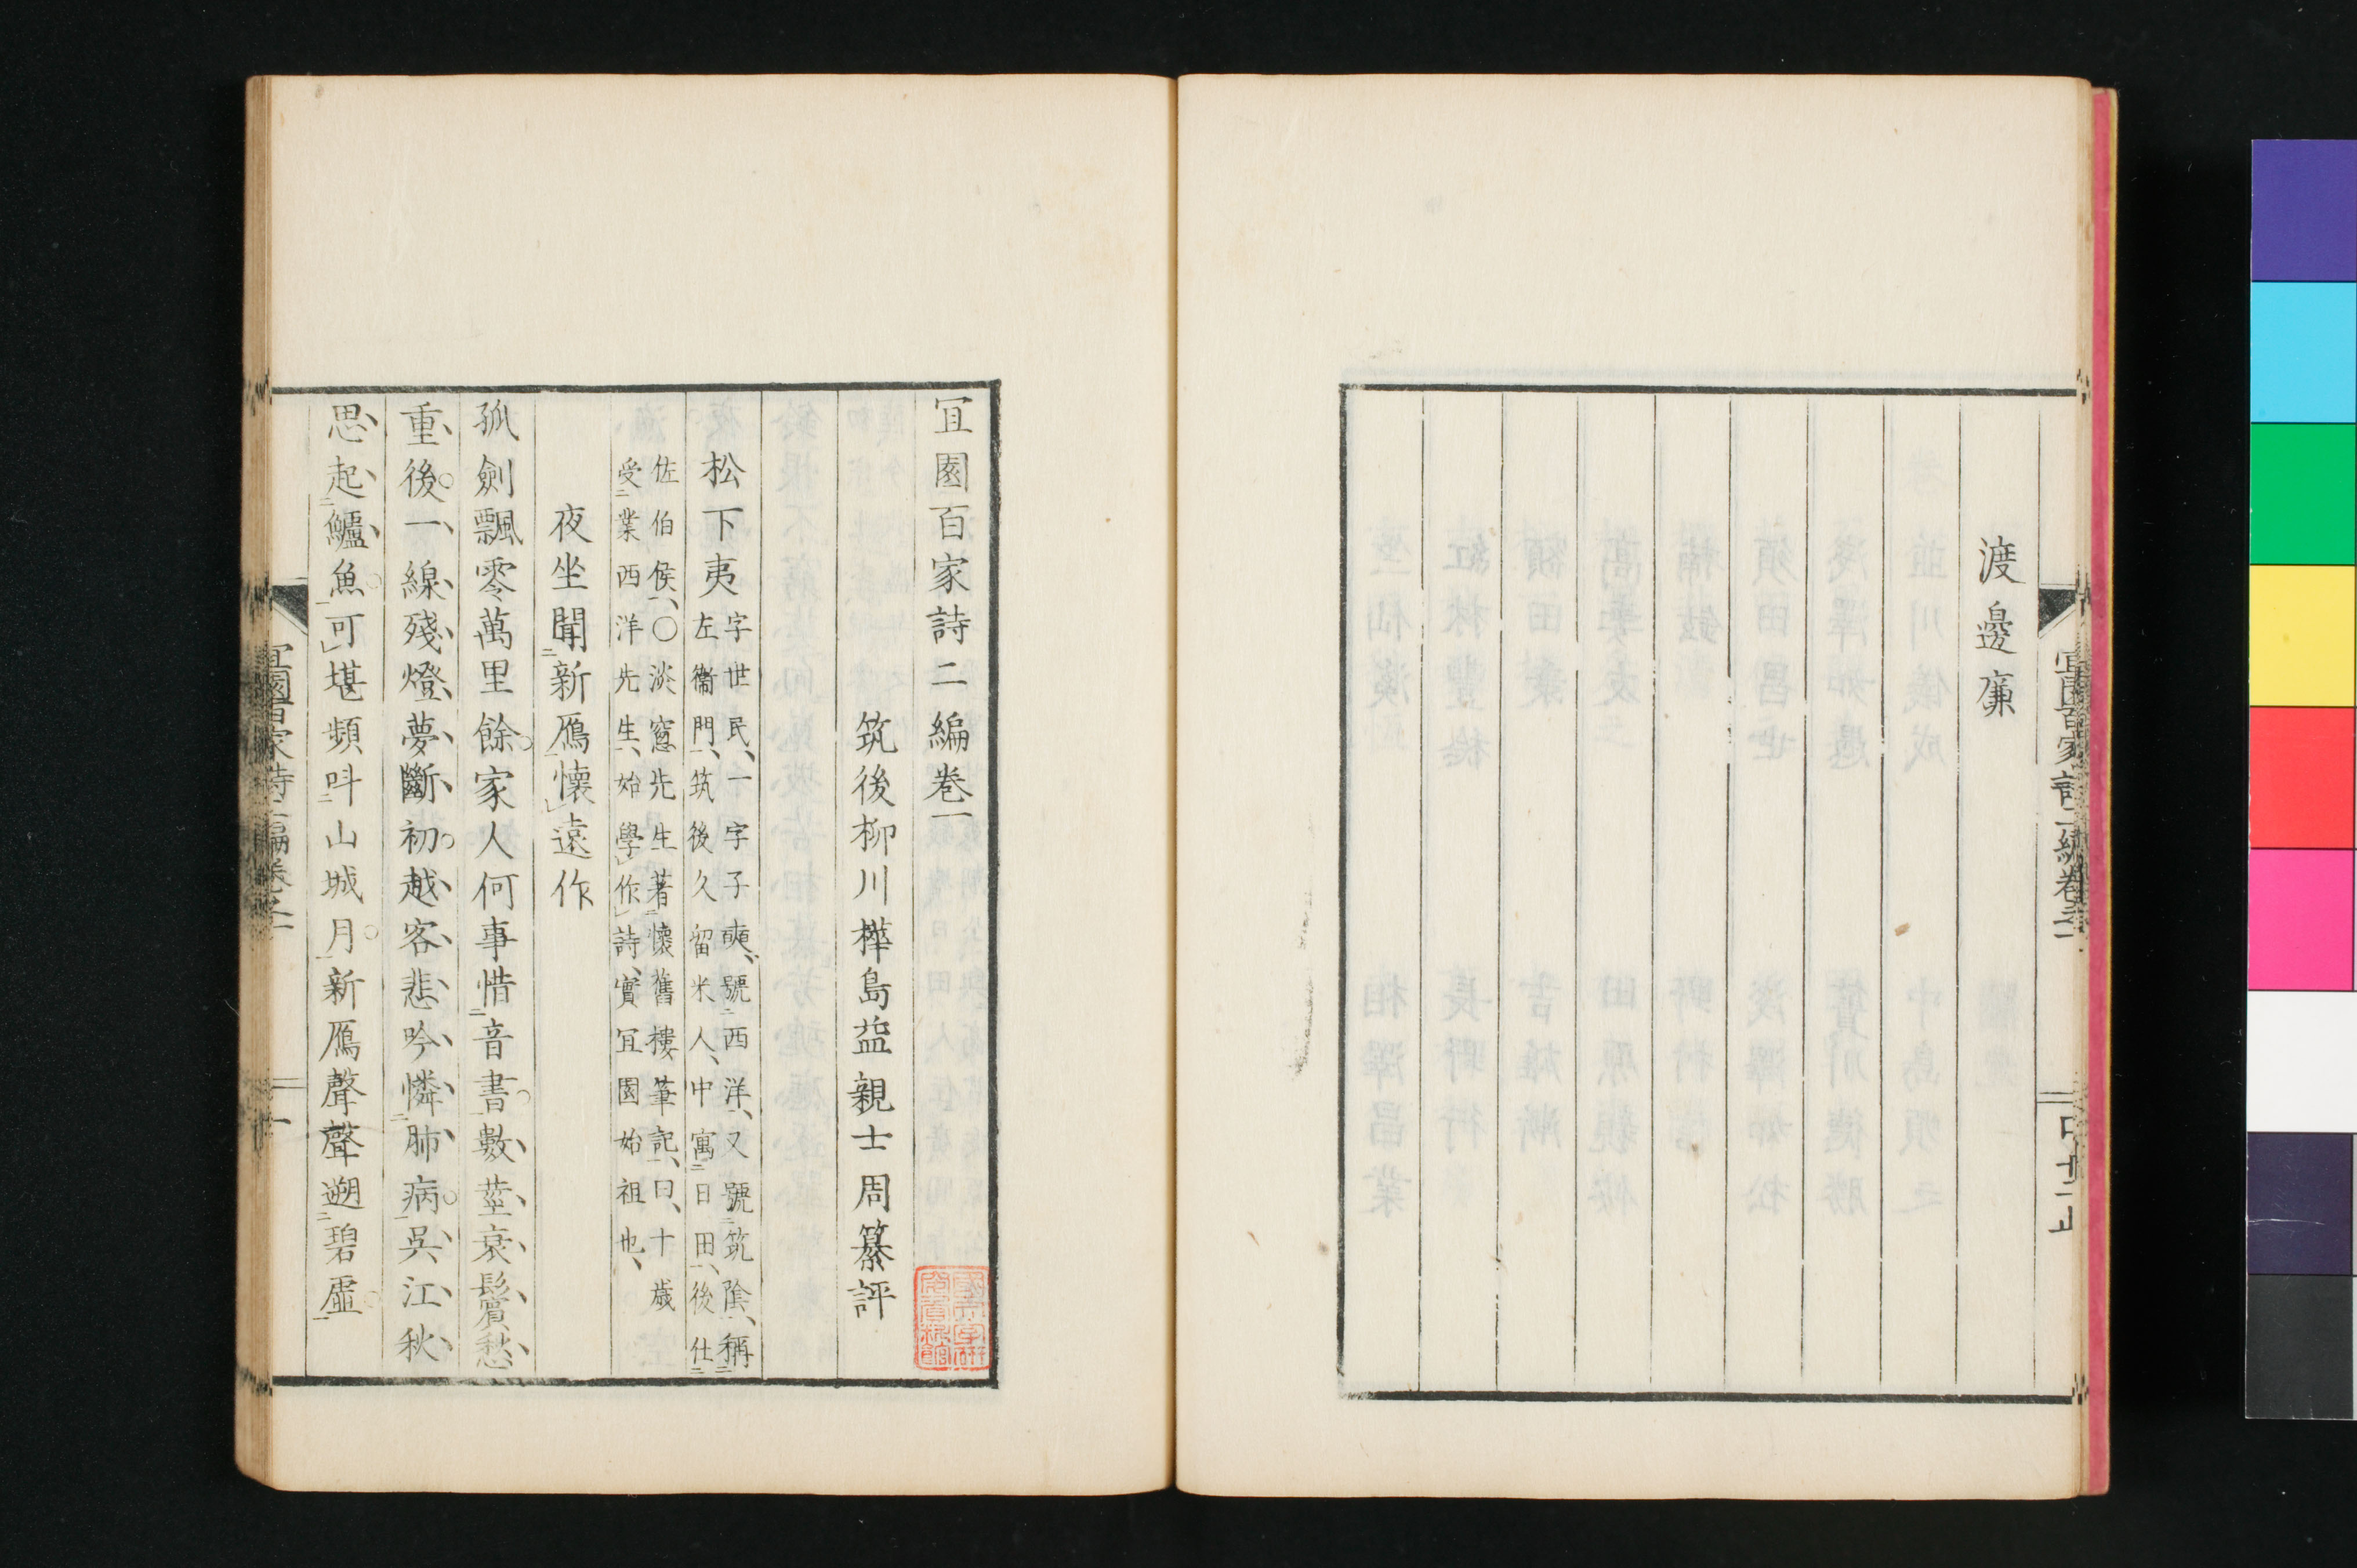 渡邊廉
宜園百家詩二編卷之一
宜園百家詩二編卷一
筑後柳川樺島益親士周纂評
松下夷
字世民、一字子奭、號西洋、又號筑陰、稱
左衞門、筑後久留米人、中寓日田、後仕
佐伯侯、〇淡窓先生著懷舊樓筆記、曰、十歲
受業西洋先生、始學作詩、實宜園始祖也、
夜坐聞新鴈懷遠作
孤劍飄零萬里餘家人何事惜音書數莖衰鬢愁
重後一線殘燈夢斷初越客悲吟憐肺病吳江秋
思起鱸魚可堪頻呌山城月新鴈聲聲遡碧虛
宜園百家詩二編卷之一
一